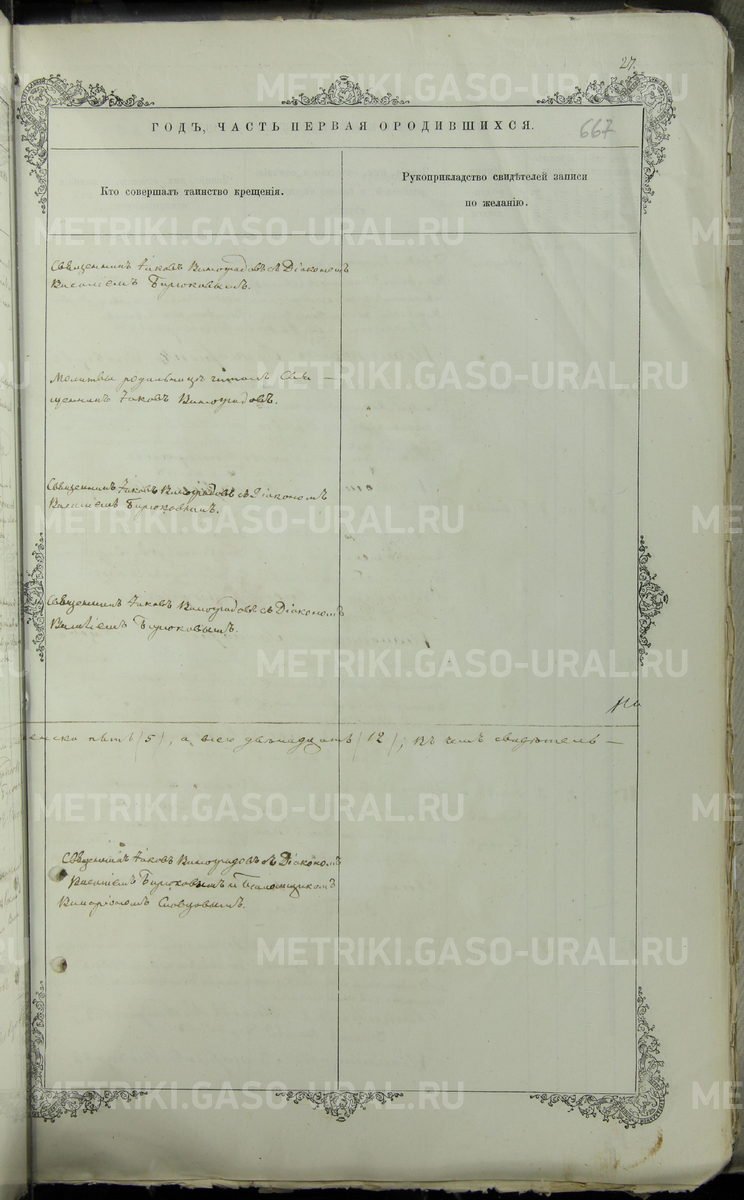 27.
ГОДЪ, ЧАСТЬ ПЕРВАЯ ОРОДИВШИХСЯ.
667
Кто совершалъ таинство крещенія.
Рукоприкладство свидѣтелей записи
по желанію.
Священникъ Іаковъ Виноградовъ съ Діакономъ
Василіемъ Бирюковымъ.
Молитвы родильницѣ читалъ Свя-
щенникъ Іаковъ Виноградовъ.
Священникъ Іаковъ Виноградовъ съ Діакономъ
Василіемъ Бирюковымъ.
Священникъ Іаковъ Виноградовъ съ Діакономъ
Василіемъ Бирюковымъ.
женска пять (5), а всего двѣнадцать (12); въ чемъ свидѣтель-
Священникъ Іаковъ Виноградовъ съ Діакономъ
Василіемъ Бирюковымъ и Псаломщикомъ
Словцовымъ.
METRIKI.GASO-URAL.RU